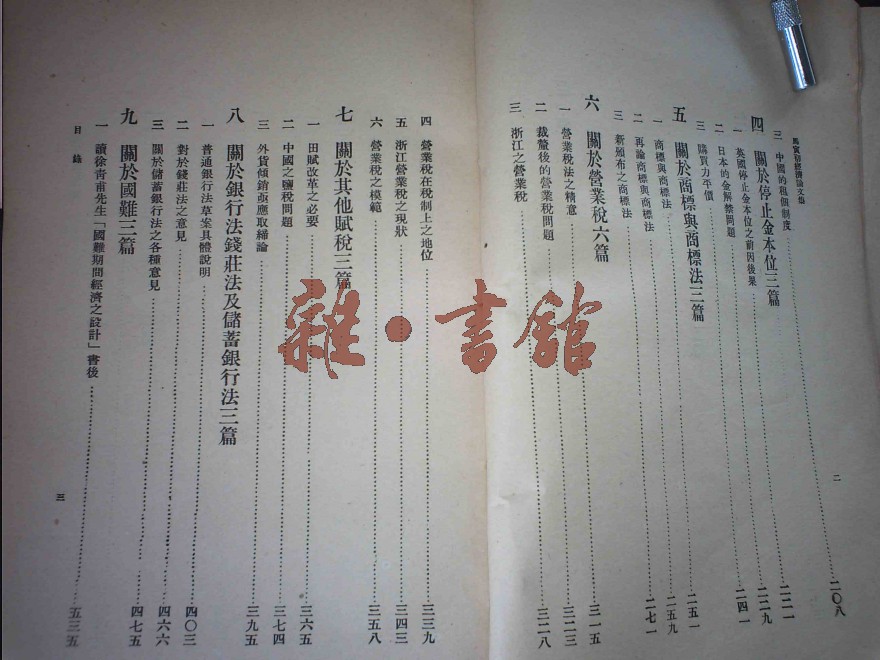 馬寅初經濟論文集
二
三 中國的租佃制度……二〇八
四 關於停止金本位三篇
一 英國停止金本位之前因後果……二二一
二 日本的金解禁問題……二二九
三 購買力平價……二四一
五 關於商標與商標法三篇
一 商標與商標法……二五一
二 再論商標與商標法……二五九
三 新頒布之商標法……二七一
六 關於營業稅六篇
一 營業稅法之精意……三一五
二 裁釐後的營業稅問題……三二三
三 浙江之營業稅……三二八
四 營業稅在稅制上之地位……三三九
五 浙江營業稅之現狀……三四三
六 營業稅之模範……三五八
七 關於其他賦稅三篇
一 田賦改革之必要……三六五
二 中國之鹽稅問題……三七四
三 外貨傾銷亟應取締論……三九五
八 關於銀行法錢莊法及儲蓄銀行法三篇
一 普通銀行法草案具體說明……四〇三
二 對於錢莊法之意見……四六六
三 關於儲蓄銀行法之各種意見……四七五
九 關於國難三篇
一 讀徐青甫先生「國難期間經濟之設計」書後……五三五
目錄
三
雜·書館